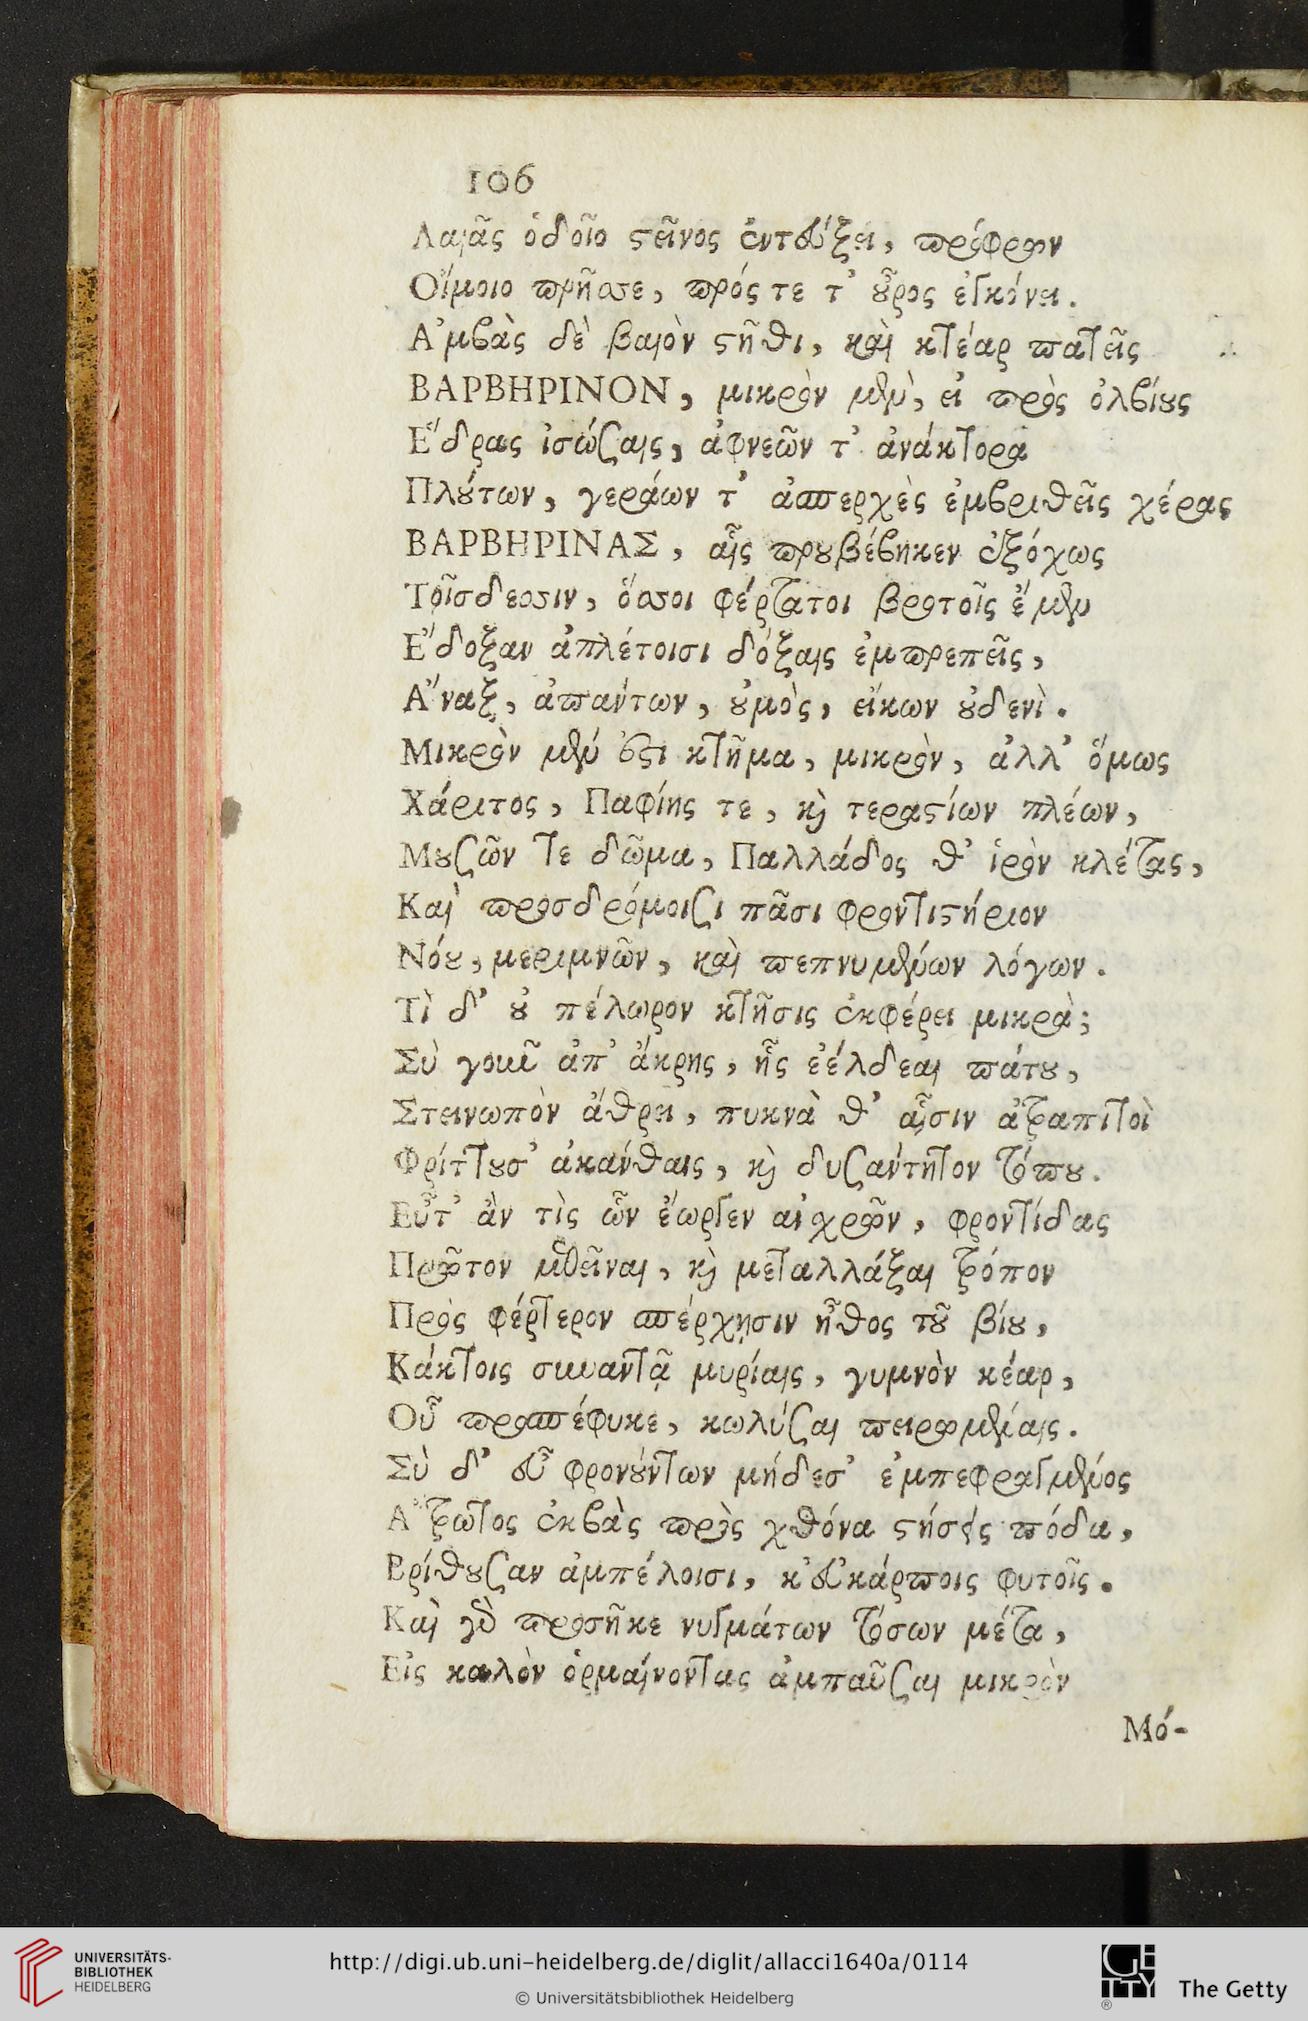 106
Λαιᾶς ὁδοῖο στεῖνος ἐντεύξει, πρόφρων
Οἴμοιο πρῆσσε, πρός τε τ' οὖρος ἐγκόνει.
Ἀμβὰς δὲ βαιὸν στῆθι, καὶ κτέαρ πατεῖς
ΒΑΡΒΗΡΙΝΟΝ, μικρὸν μὲν, εἰ πρὸς ὀλβίους
Ἕδρας ἰσώσαις, ἀφνεῶν τ' ἀνάκτορα
Πλούτων, γεράων τ' ἀσπερχὲς ἐμβριθεῖς χέρας
ΒΑΡΒΗΡΙΝΑΣ, αἷς προυβέβηκεν ἐξόχως
Τοῖσδεσσιν, ὅσσοι φέρτατοι βροτοῖς ἔμεν
Ἔδοξαν ἀπλέτοισι δόξαις ἐμπρεπεῖς,
Ἄναξ, ἁπάντων, οὑμὸς, εἴκων οὐδενὶ.
Μικρὸν μὲν ἐστι κτῆμα, μικρὸν, ἀλλ' ὅμως
Χάριτος, Παφίης τε, καὶ τεραστίων πλέων,
Μουσῶν τε δῶμα, Παλλάδος θ' ἱρὸν κλέτας,
Καὶ προσδρόμοισι πᾶσι φροντιστήριον
Νόου, μεριμνῶν, καὶ πεπνυμένων λόγων.
Τὶ δ' οὐ πέλωρον κτῆσις ἐκφέρει μικρὰ;
Σὺ γοῦν ἀπ' ἄκρης, ἧς ἐέλδεαι πάτου,
Στεινωπὸν ἄθρει, πυκνὰ θ' αἷσιν ἀτραπιτοὶ
Φρίττουσ' ἀκάνθαις, καὶ δυσάντητον τόπου.
Εὖτ' ἂν τὶς ὧν ἔωργεν αἰχρῶν, φροντίδας
Πρῶτον μεθεῖναι, καὶ μεταλλάξαι τρόπον
Πρὸς φέρτερον σπέρχῃσιν ἦθος τοῦ βίου,
Κάκτοις συναντᾷ μυρίαις, γυμνὸν κέαρ,
Οὗ προσπέφυκε, κωλύσαι πειρωμέναις.
Σὺ δ' εὖ φρονούντων μήδεσ' ἐμπεφραγμένος
Ἄτρωτος ἐκβὰς πρὸς χθόνα στήσεις πόδα,
Βρίθουσαν ἀμπέλοισι, κ' εὐκάρποις φυτοῖς.
Καὶ γὰρ προσῆκε νυγμάτων τόσων μέτα,
Εἰς καλὸν ὁρμαίνοντας ἀμπαῦσαι μικρὸν
Μό-
UNIVERSITÄTS-
BIBLIOTHEK
HEIDELBERG
http://digi.ub.uni-heidelberg.de/diglit/allacci1640a/0114
© Universitätsbibliothek Heidelberg
GETTY
®
The Getty